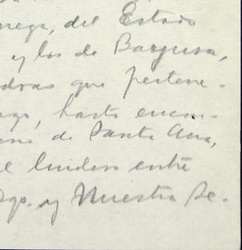 nega, del Estado
y los de Baragua,
dras que pertene-
ago, hasta encon-
no de Santa Ana,
el lindero entre
ago. y Nuestra Se-